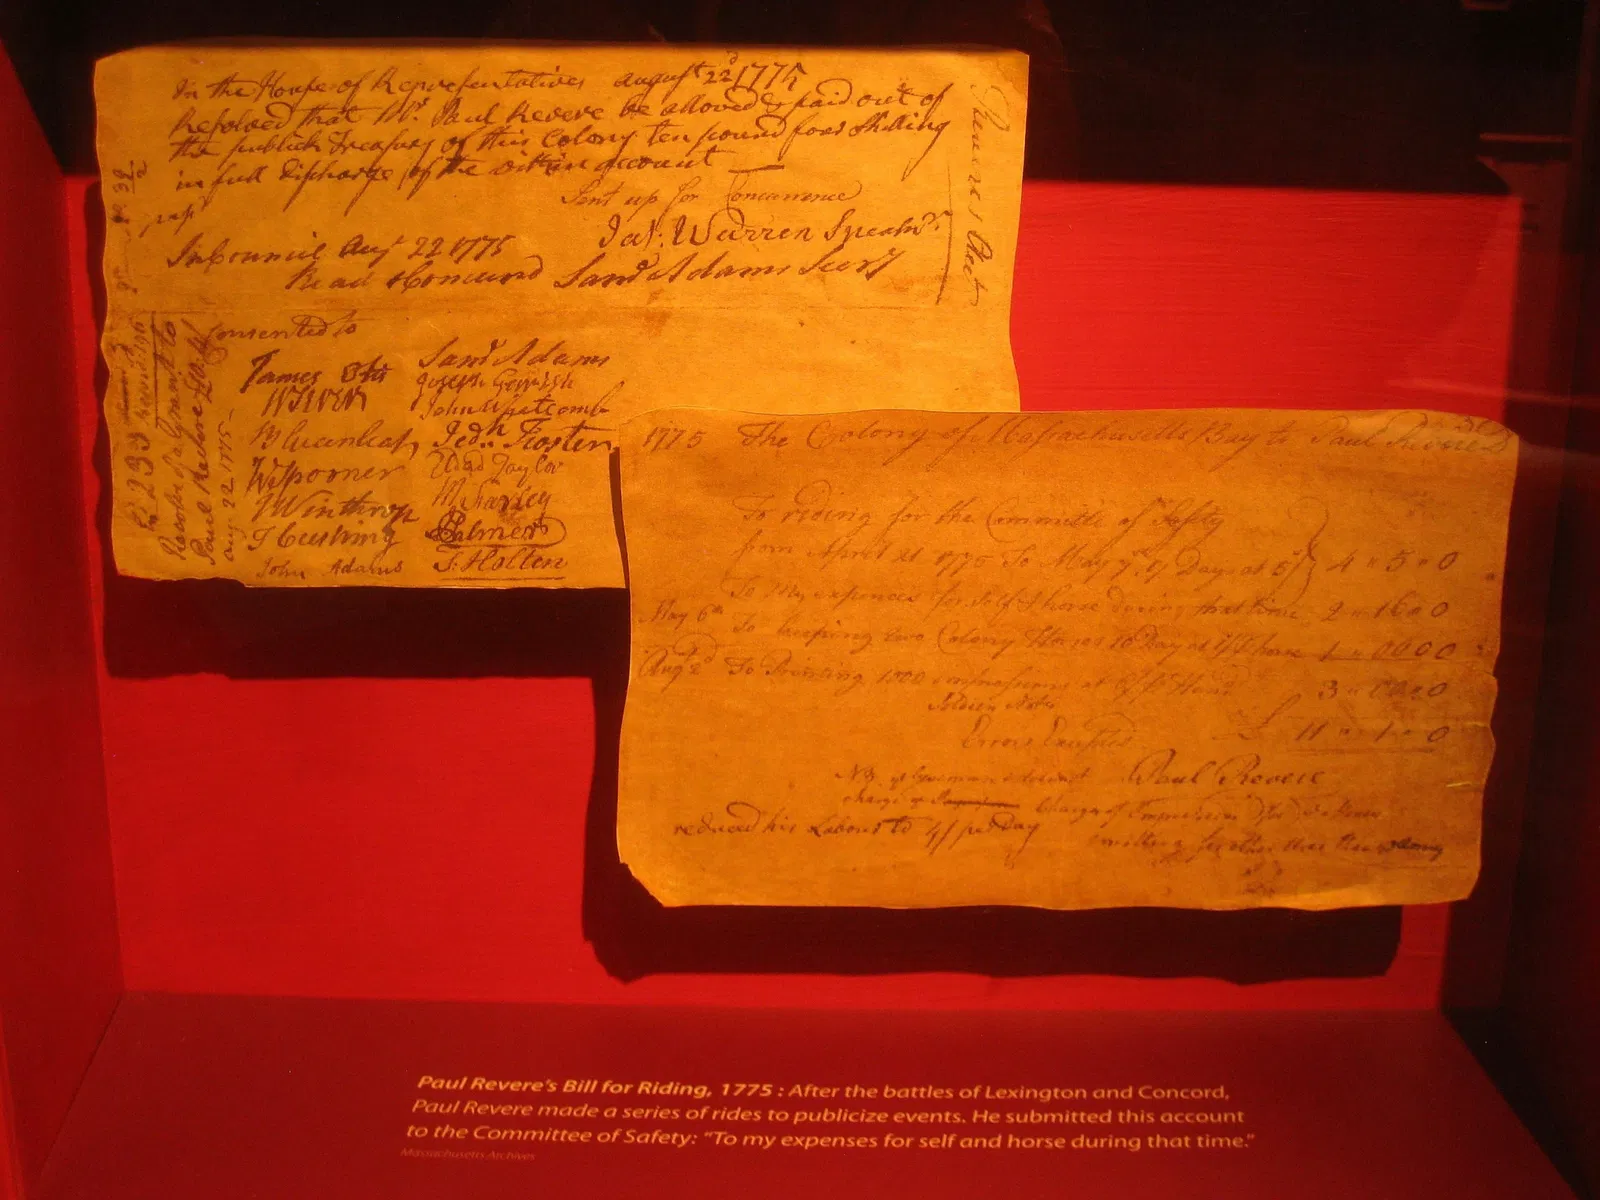 In the House of Representatives August 22d 1775
Resolved that Mr. Paul Revere be allowed & paid out of
the publick Treasury of this Colony ten pound four shilling
in full discharge of the within account
Sent up for Concurrence
Jas: Warren Speakr
In Council Augt 22 1775
Read & Concurd Saml Adams Secry
Consented to
James Otis
W Sever
B Greenleaf
W Spooner
J Winthrop
T Cushing
John Adams
Saml Adams
Joseph Gerrish
John Whetcomb
Jedh Foster
Eldad Taylor
B Palmer
S: Holten
Paul Revere
Aug 22 1775
1775 The Colony of Massachusetts Bay to Paul Revere Dr
To riding for the Committee of Safety
from April 21 1775 To May 7th 17 Days at 5/ 4 " 5 " 0
To my expences for self & horse during that time 2 " 16 " 0
May 6th To keeping two Colony Horses 10 Day at 1/ horse 1 " 00 " 0
Augt 2d To Printing 1000 impressions at 3 " 00 " 0
Soldiers Notes
£ 11 " 1 " 0
Errors Excepted
Paul Revere
reduced his Labour to 4/ per Day
Paul Revere's Bill for Riding, 1775 : After the battles of Lexington and Concord,
Paul Revere made a series of rides to publicize events. He submitted this account
to the Committee of Safety: "To my expenses for self and horse during that time."
Massachusetts Archives